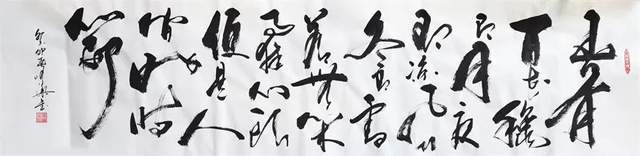 春有
百花秋
有月夏
有凉风
冬有雪
若無闲
事挂心头
便是人
间好时
節
癸卯